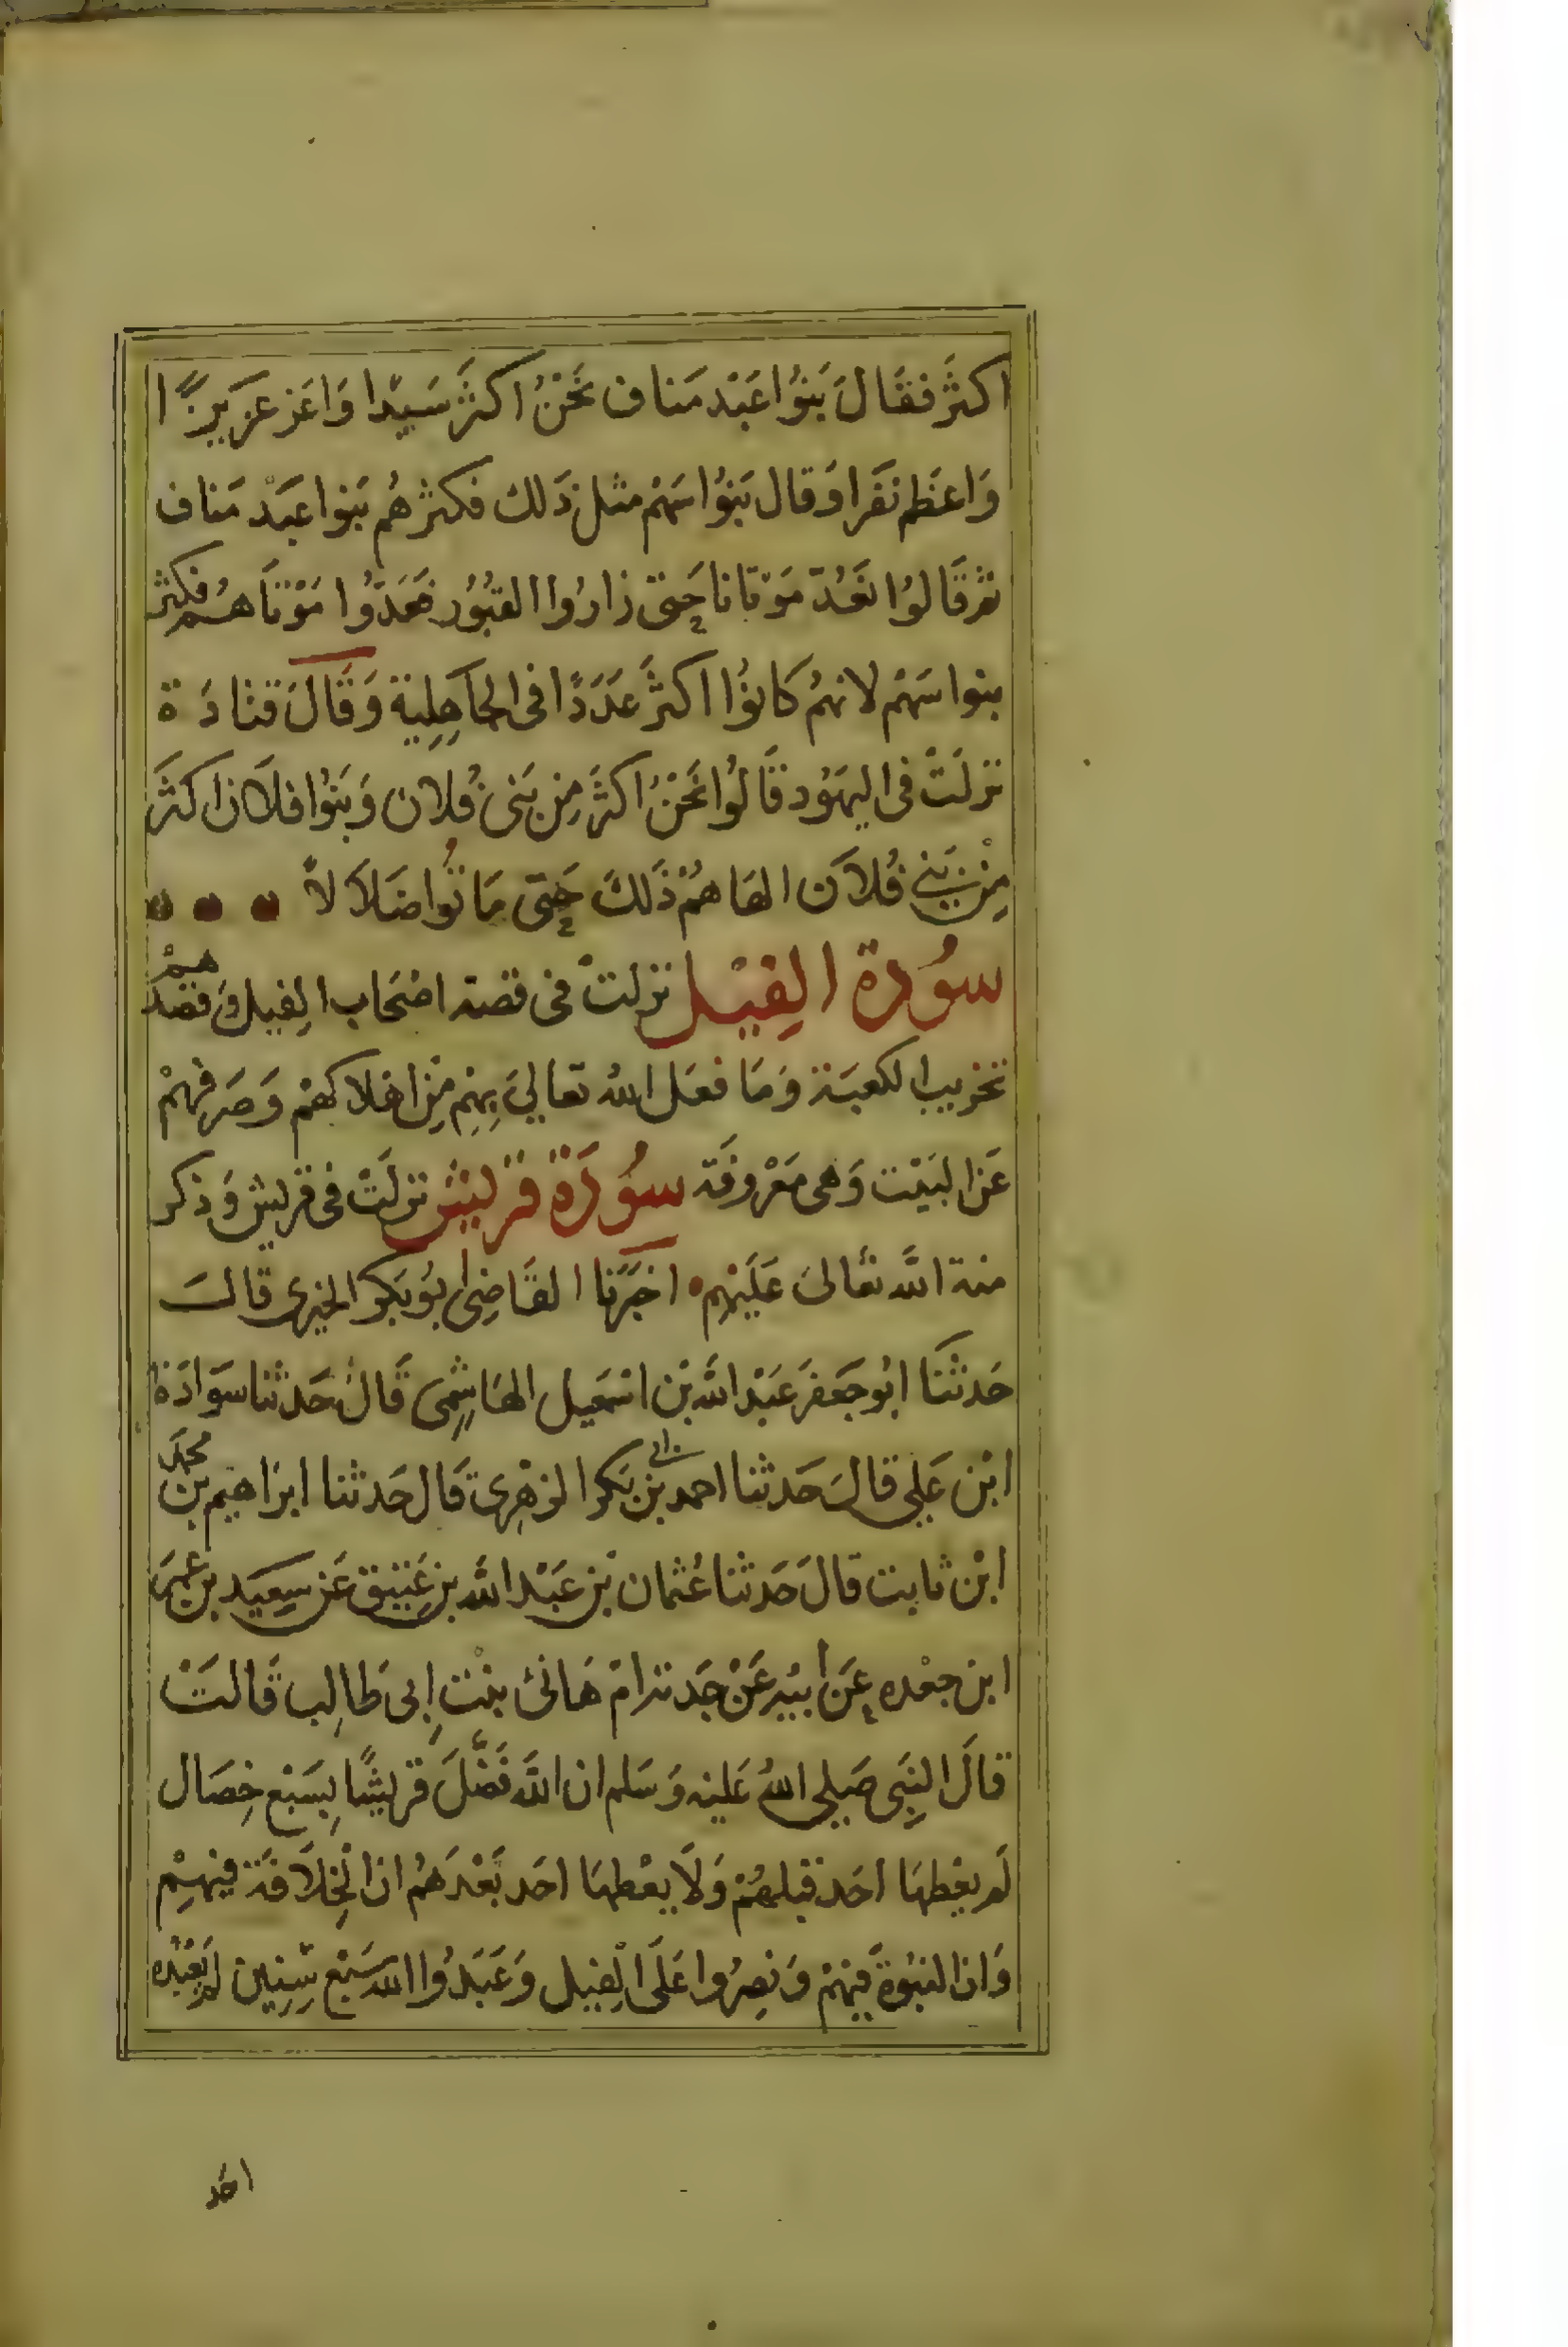 اكثَر فقَالَ بَنُوا عَبْد مَناف نَحْنُ اكثَر سَيِدًا وَاعَز عَزيزًا
وَاعظَم نَفَرا وَقال بَنُوا سَهْم مثل ذَلك فكثرهُم بَنوا عَبَد مَناف
ثم قَالوُا نَعُدّ مَوْتانا حَتى زارُوا القبُوُر فعَدّوُا مَوْتاَهُم فكثر
بنوا سَهْم لانهُم كَانوُا اكثَر عَدَدًا فى الجاَهِلِية وَقَالَ قتادَة
نزلَتْ فى اليهَوُد قَالوُا نَحْنُ اكثَر مِن بَنى فُلان وَبَنوُا فلاَن اكثَر
مِنْ بَنِي فُلاَن الهَاهُمْ ذَلكَ حَتى مَاتُوا ضَلاَلاً
سوُرة الفِيْل نزلتْ فى قصة اصْحَاب الِفيل وَقصْدهم
تخريب الكعبَة وَمَا فعَل اللهُ تعَاليَ بِهِم مِنْ اهْلاكهمْ وَصَرفهمْ
عَن البَيْت وَهى مَعْروفَة سوُرَة قريش نزلَتْ فى قريش وَذكر
منة اللَّه تعَالىَ عَلَيْهِم اخبَرَنا القَاضِى ابُو بَكر الحيرى قالَ
حَدثنَا ابُو جَعفرَ عَبْد اللَّه بْن اسْمَعيل الهَاشِمى قَالَ حَدثنا سَوادَة
ابْن عَلِي قالَ حَدثنا احمد بْن ابى بَكر الزهْرِى قَال حَدثنا ابرَاهيم بن محمد
ابْن ثابت قالَ حَدثنا عُثمان بْن عَبْد اللَّه بن عَتيق عَن سعِيَد بن عمر
ابن جعْده عَن أبيْه عَنْ جَدته امّ هَانئ بنْتِ ابى طَالِب قَالتَْ
قالَ النبِى صَلى اللهُ عَليْه وَسَلم ان اللَّه فَضَّلَ قريْشًا بِسَبْع خِصَال
لَم يعْطهَا احَد قبلهُمْ وَلاَ يعْطهَا احَد بَعْدَهُمْ ان الْخِلاَفَة فيهِمْ
وَان النبُوة فيَهمْ وَنصِرُوا عَلَى الْفِيل وَعَبَدُوا اللهَ سَبْع سِنِين لم يَعْبُدْه
احَد